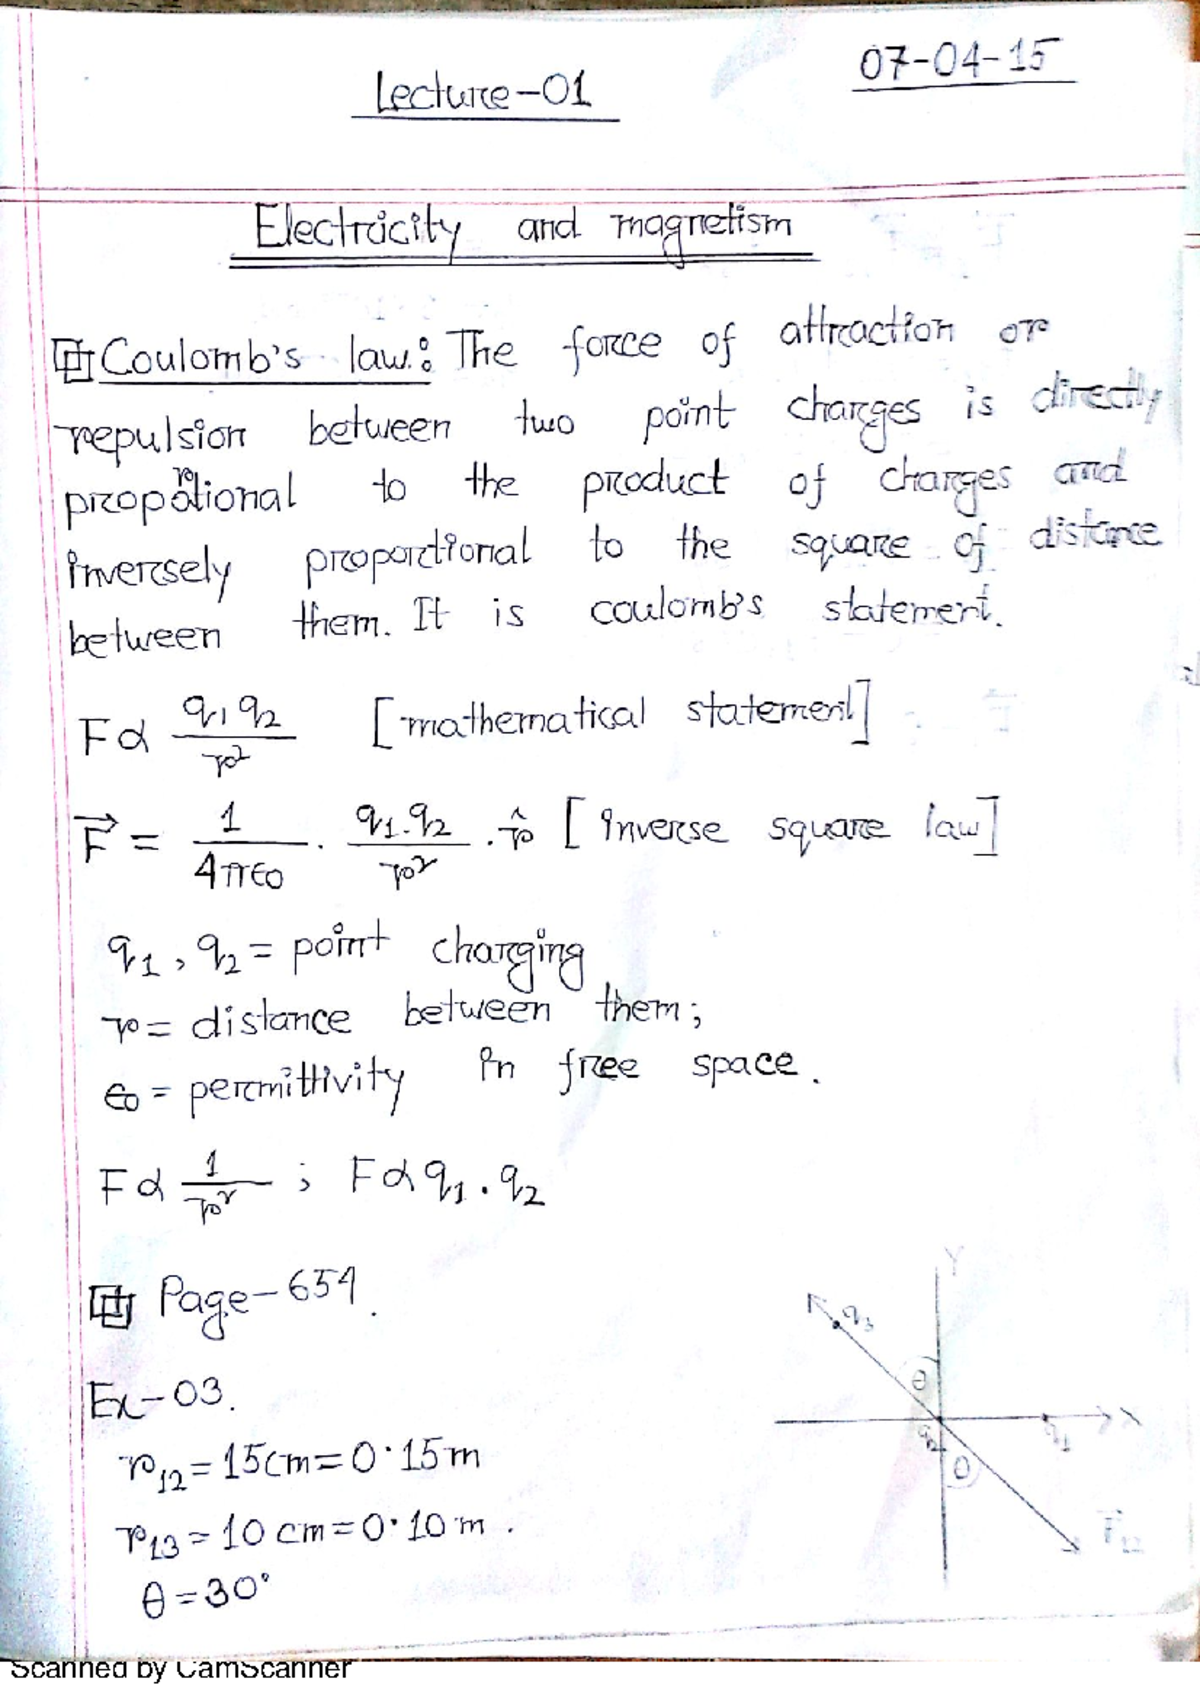 07-04-15
Lecture-01
Electricity and magnetism
Coulomb's law: The force of attraction or
repulsion between two point charges is directly
proportional to the product of charges and
inversely proportional to the square of distance
between them. It is coulomb's statement.
F α q1 q2 / r² [mathematical statement]
F⃗ = 1/4πε0 · q1.q2/r² · r̂ [inverse square law]
q1, q2 = point charging
r = distance between them;
ε0 = permittivity in free space.
F α 1/r² ; F α q1 . q2
Page-654.
Ex-03.
r12 = 15cm = 0·15m
r13 = 10 cm = 0·10 m.
θ = 30°
Y
q3
θ
X
q1
θ
Scanned by CamScanner